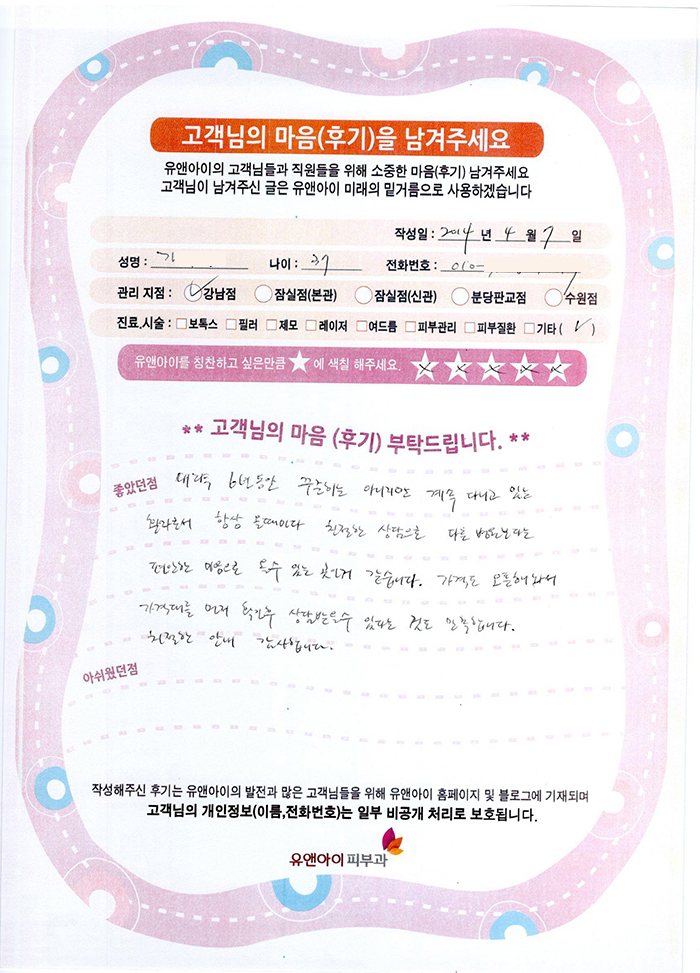 고객님의 마음(후기)을 남겨주세요
유앤아이의 고객님들과 직원들을 위해 소중한 마음(후기) 남겨주세요
고객님이 남겨주신 글은 유앤아이 미래의 밑거름으로 사용하겠습니다
작성일 : 2014 년 4 월 7 일
성명 : 기 나이 : 37 전화번호 : 010-
관리 지점 : 강남점 잠실점(본관) 잠실점(신관) 분당판교점 수원점
진료,시술 : 보톡스 필러 제모 레이저 여드름 피부관리 피부질환 기타 ( )
유앤아이를 칭찬하고 싶은만큼 ★에 색칠 해주세요.
** 고객님의 마음 (후기) 부탁드립니다. **
좋았던점 대략 6년동안 꾸준히는 아니지만 계속 다니고 있는
환자로서 항상 올때마다 친절한 상담으로 다른 병원보다는
편안한 마음으로 올수 있는 곳인거 같습니다. 가격도 오픈해놔서
가격대를 먼저 확인후 상담받을수 있다는 것도 만족합니다.
친절한 안내 감사합니다.
아쉬웠던점
작성해주신 후기는 유앤아이의 발전과 많은 고객님들을 위해 유앤아이 홈페이지 및 블로그에 기재되며
고객님의 개인정보(이름,전화번호)는 일부 비공개 처리로 보호됩니다.
유앤아이피부과